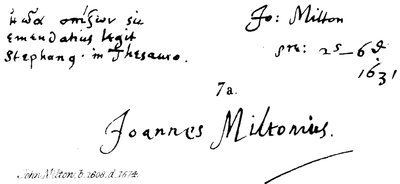 sic
emendatius legit
Stephan9. in Thesauro.
Jo: Milton
pre: 2s - 6d.
1631
7a.
Joannes Miltonius.
John Milton, b. 1608. d. 1674.